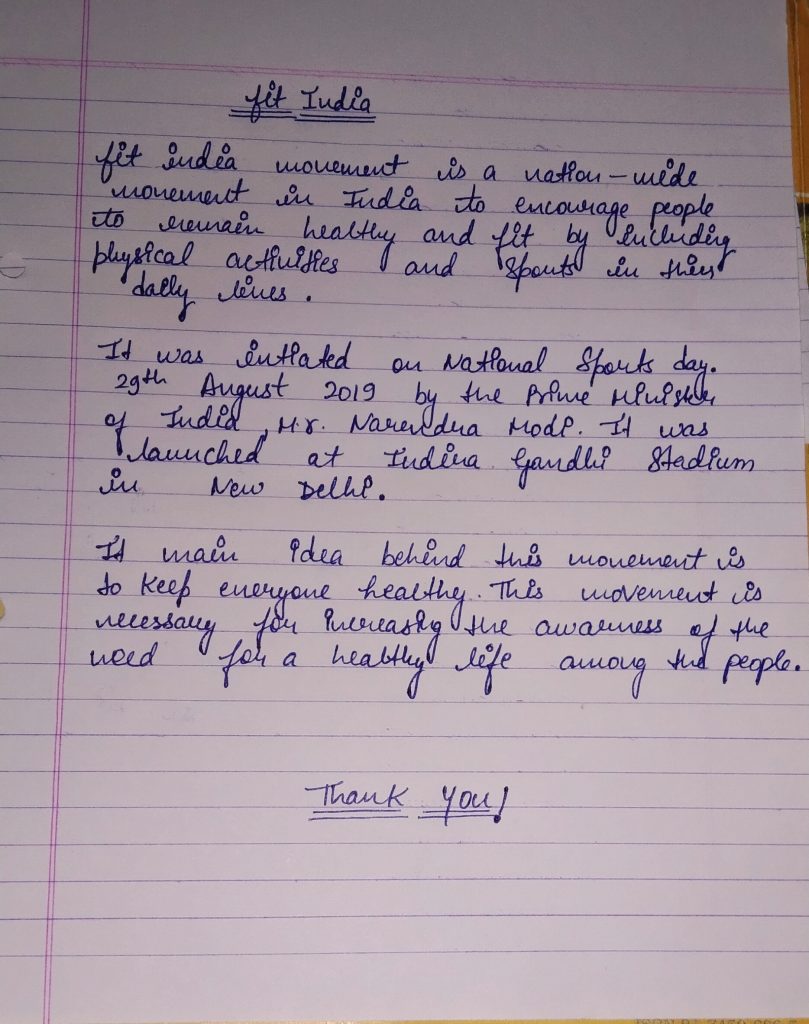 fit India
fit india movement is a nation-wide
movement in India to encourage people
to remain healthy and fit by including
physical activities and Sports in their
daily lives.
It was intiated on National Sports day.
29th August 2019 by the Prime Minister
of India, Mr. Narendra Modi. It was
launched at Indira Gandhi Stadium
in New Delhi.
It main idea behind this movement is
to keep everyone healthy. This movement is
necessary for increasing the awarness of the
need for a healthy life among the people.
Thank You!